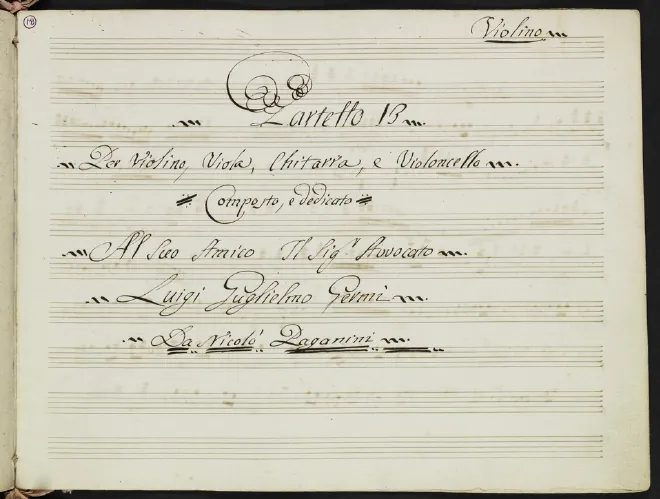 Violino
Quartetto 13
Per Violino, Viola, Chitarra, e Violoncello
Composto, e dedicato
Al Suo Amico Il Sigr. Avvocato
Luigi Guglielmo Germi
Da Nicoló Paganini